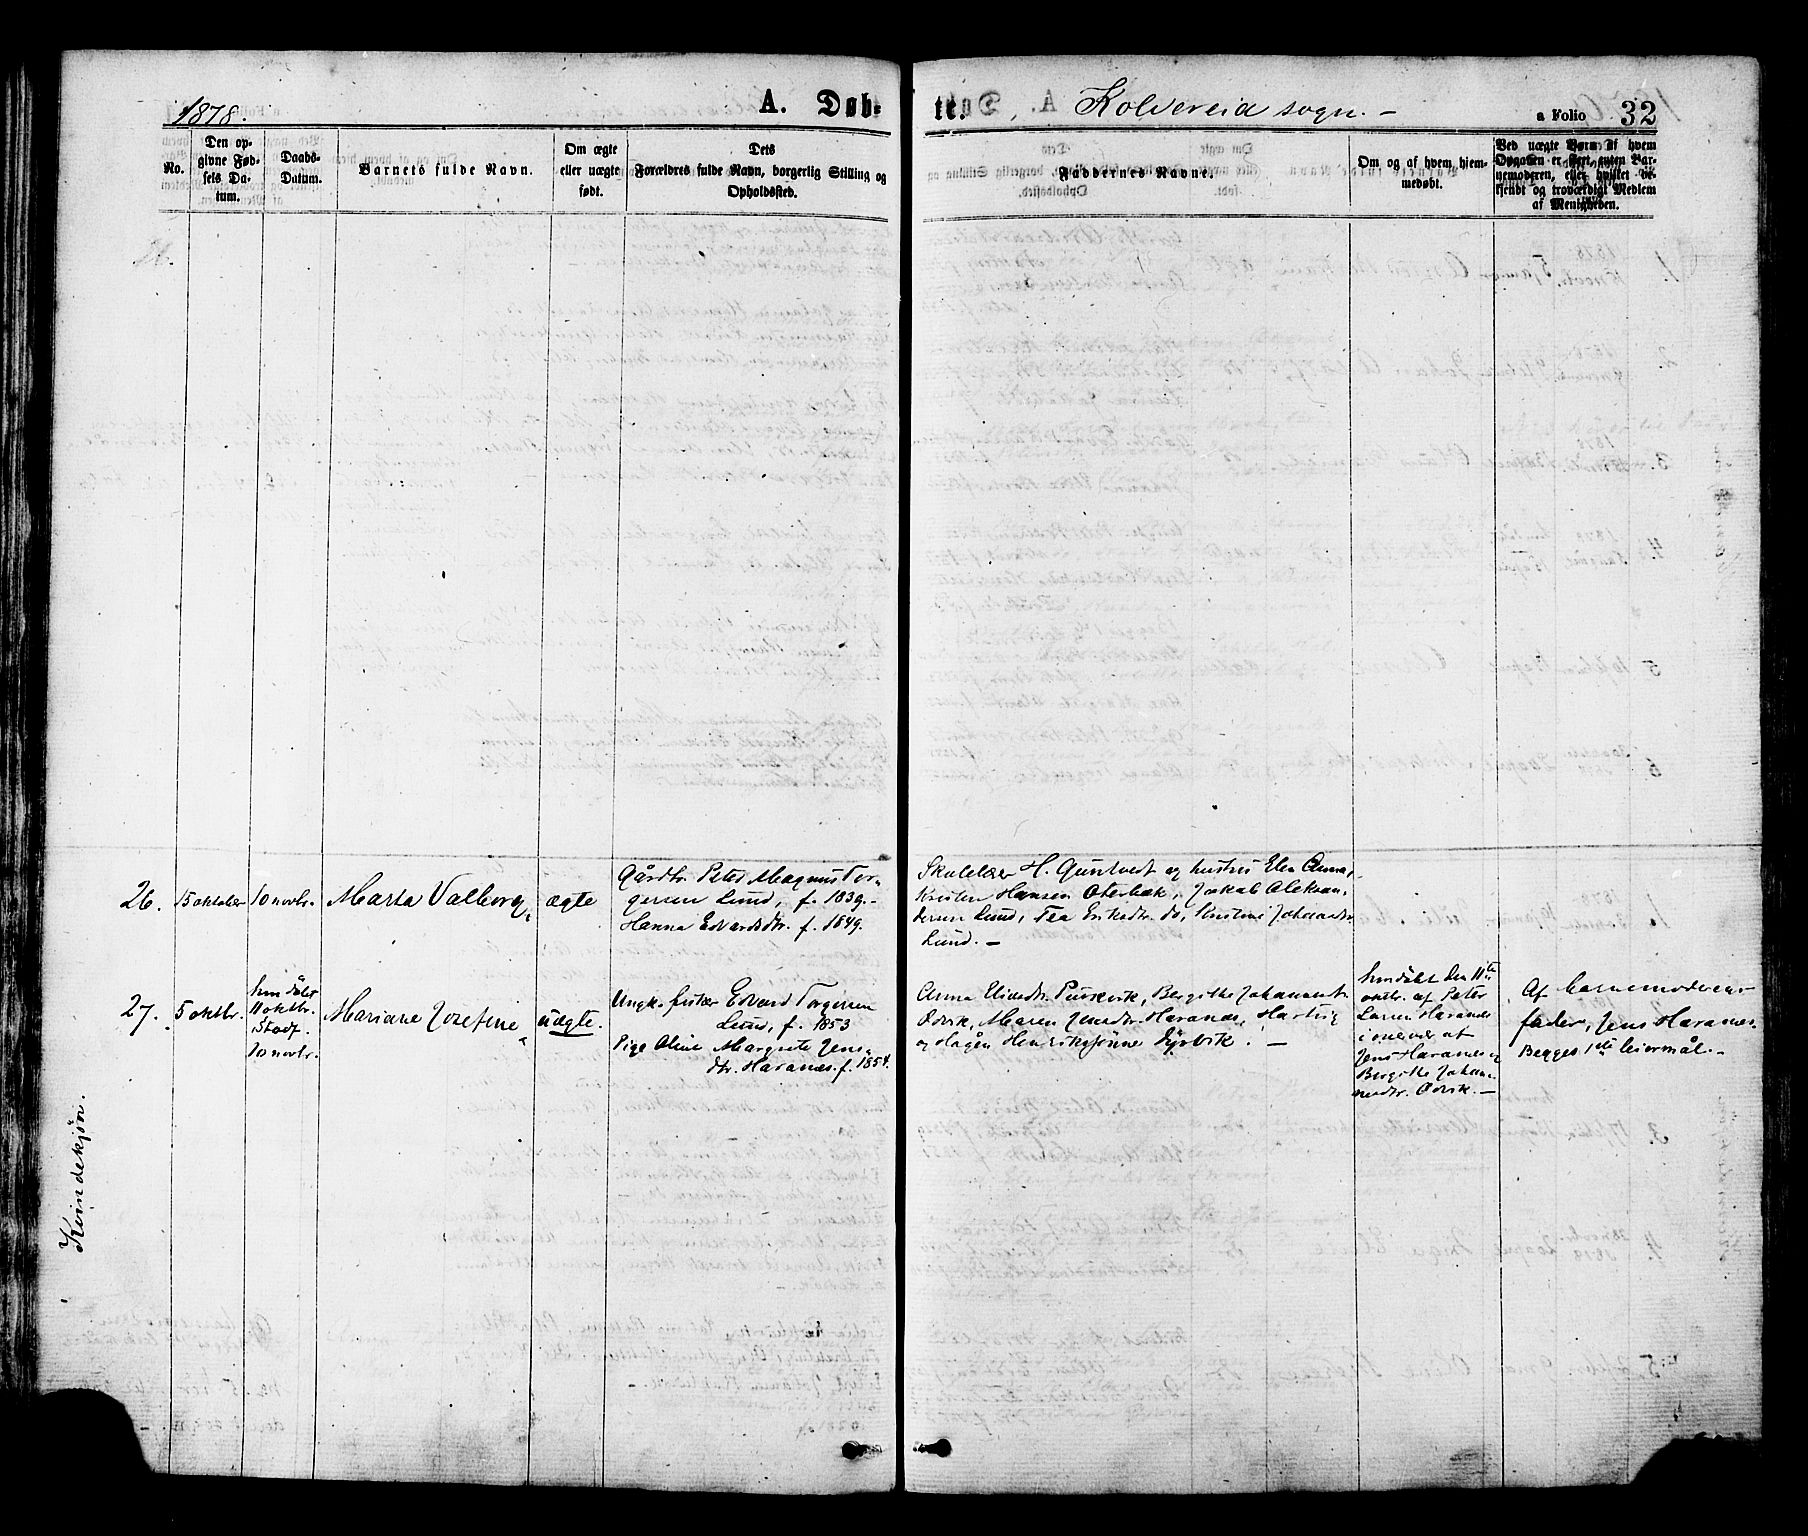 1878.
A. Døb-
te.
Kolvereid sogn. -
a Folio 32
No.
Den op-
givne Fød-
sels Da-
tum.
Daabs-
Datum.
Barnets fulde Navn.
Om ægte
eller uægte
født.
Dets
Forældres fulde Navn, borgerlig Stilling og
Opholdssted.
Faddernes Navne.
Om og af hvem hjem-
medøbt.
Ved uægte Børn: af hvem
Opgaven er skeet, enten Bar-
nemoderen, eller hvilket be-
kjendt og troværdigt Medlem
af Menigheden.
26.
15 oktober
10 novbr.
Marta Valborg,
ægte
Gårdbr. Peter Magnus Tor-
gersen Lund, f. 1839. -
Hanna Edvardsdtr. f. 1849.
Skolelær H. Guntvedt og hustru Elen Anna,
Kristen Hansen Oterbæk, Jakob Aleksan-
dersen Lund, Tea Eriksdtr. do, Kristine Johansdtr.
Lund. -
27.
5 oktbr.
hmdøbt
11 oktbr.
Stadf.
10 novbr.
Mariane Jozefine,
uægte.
Ungk. fisker Edvard Torgersen
Lund, f. 1853
Pige Oline Margrete Jens-
dtr. Haranes. f. 1854.
Anna Purkvik, Bergitte Johannesdtr.
Odvik, Maren Jensdtr. Haranes, Hartvig
og Hågen Henrikssønner -
hmdøbt den 11te
oktbr. af Peter
Larsen Haranes
i overvær af
Jens Haranes og
Bergitte Johan-
nesdtr. Odvik. -
Af barnemoderens
fader, Jens Haranes.
Begges 1ste leiermål. -
Kvindekjøn.